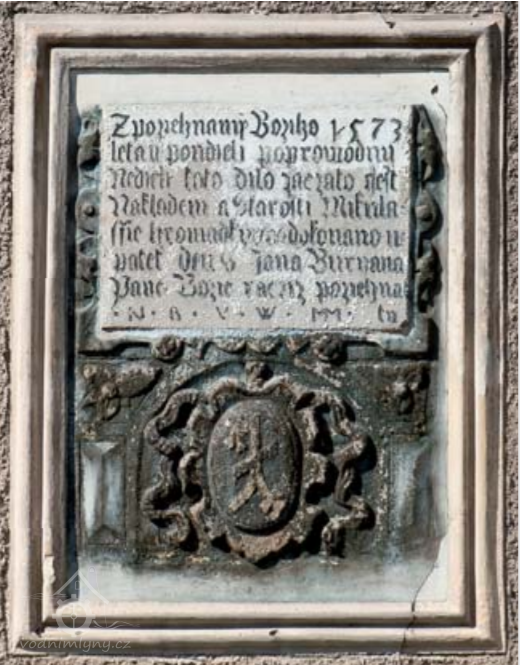 Z poziehnanij Božiho 1573
leta u pondieli poprowodni
Nedieli toto dilo zaczato jest
Nakladem a Starosti Mikula
ssie Hromadky dokonano u
patek den S Jana Buryana
Pane Bozie racziz poziehna
· N · B · V · W · MM · tu
vodnimlyny.cz